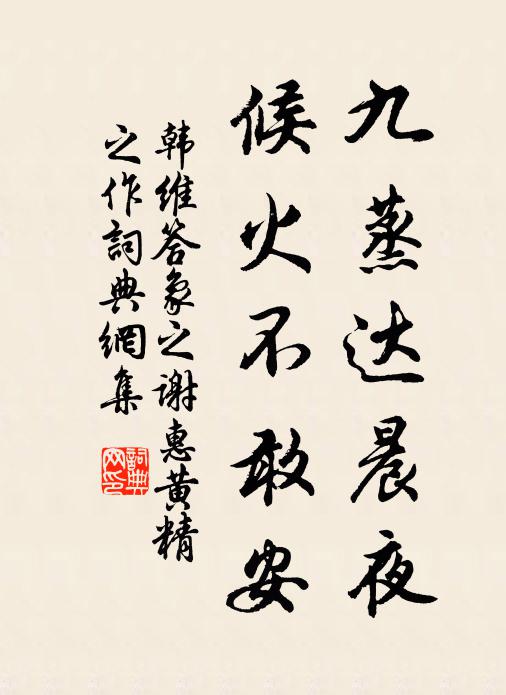 九蒸达晨夜
候火不敢安
韩维答象之谢惠黄精
之作詞典網集
詞典
网印